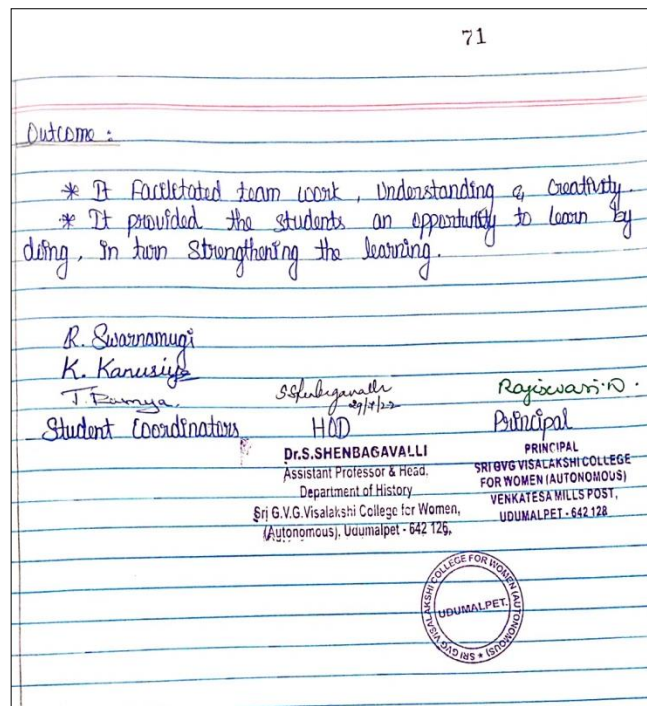 71
Outcome :
* It Facilitated team work, Understanding & Creativity.
* It provided the students an opportunity to learn by
doing, in turn Strengthening the learning.
R. Swarnamugi
K. Kanusiya
T. Ramya.
S.Shenbagavalli
29/4/22
Rajeswari.D.
Student Coordinators HOD Principal
Dr.S.SHENBAGAVALLI
Assistant Professor & Head,
Department of History
Sri G.V.G.Visalakshi College for Women,
(Autonomous), Udumalpet - 642 126.
PRINCIPAL
SRI GVG VISALAKSHI COLLEGE
FOR WOMEN (AUTONOMOUS)
VENKATESA MILLS POST,
UDUMALPET - 642 128
SRI GVG VISALAKSHI COLLEGE FOR WOMEN (AUTONOMOUS) *
UDUMALPET.